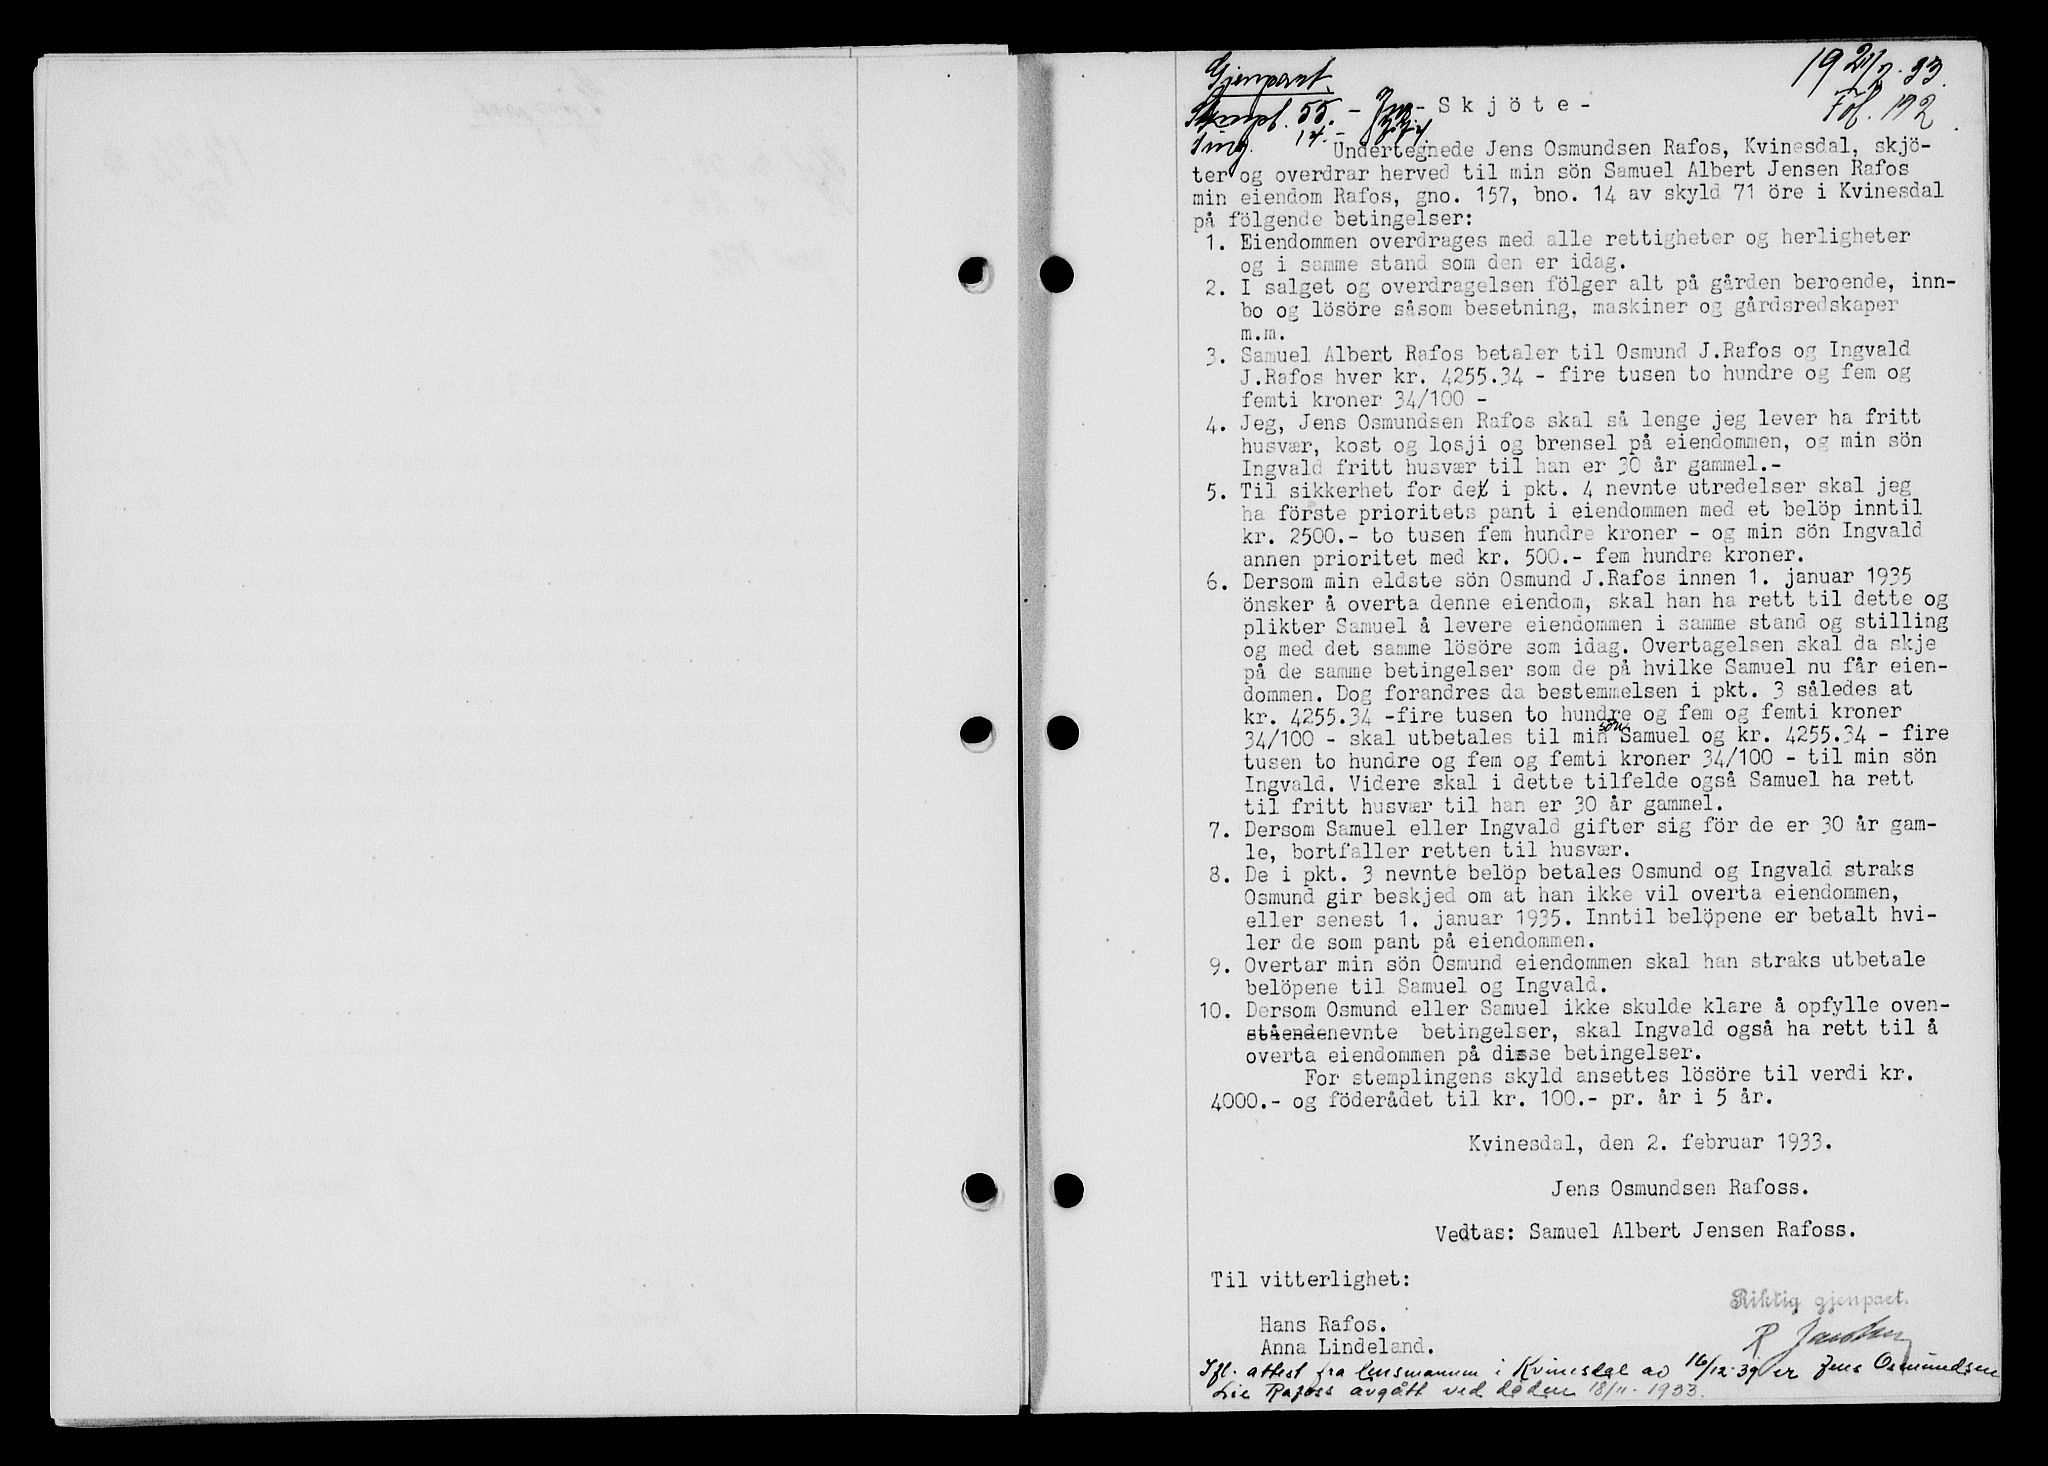 Gjenpart. 19 2/2. 33.
Stempl. 55. - - Skjöte - Fol. 192
Ting. 14. -
Undertegnede Jens Osmundsen Rafos, Kvinesdal, skjö-
ter og overdrar herved til min sön Samuel Albert Jensen Rafos
min eiendom Rafos, gno. 157, bno. 14 av skyld 71 öre i Kvinesdal
på fölgende betingelser:
1. Eiendommen overdrages med alle rettigheter og herligheter
og i samme stand som den er idag.
2. I salget og overdragelsen fölger alt på gården beroende, inn-
bo og lösöre såsom besetning, maskiner og gårdsredskaper
m.m.
3. Samuel Albert Rafos betaler til Osmund J.Rafos og Ingvald
J.Rafos hver kr. 4255.34 - fire tusen to hundre og fem og
femti kroner 34/100 -
4. Jeg, Jens Osmundsen Rafos skal så lenge jeg lever ha fritt
husvær, kost og losji og brensel på eiendommen, og min sön
Ingvald fritt husvær til han er 30 år gammel.-
5. Til sikkerhet for det i pkt. 4 nevnte utredelser skal jeg
ha förste prioritets pant i eiendommen med et belöp inntil
kr. 2500.- to tusen fem hundre kroner - og min sön Ingvald
annen prioritet med kr. 500.- fem hundre kroner.
6. Dersom min eldste sön Osmund J.Rafos innen 1. januar 1935
önsker å overta denne eiendom, skal han ha rett til dette og
plikter Samuel å levere eiendommen i samme stand og stilling
og med det samme lösöre som idag. Overtagelsen skal da skje
på de samme betingelser som de på hvilke Samuel nu får eien-
dommen. Dog forandres da bestemmelsen i pkt. 3 således at
kr. 4255.34 -fire tusen to hundre og fem og femti kroner
34/100 - skal utbetales til min sön Samuel og kr. 4255.34 - fire
tusen to hundre og fem og femti kroner 34/100 - til min sön
Ingvald. Videre skal i dette tilfelde også Samuel ha rett
til fritt husvær til han er 30 år gammel.
7. Dersom Samuel eller Ingvald gifter sig för de er 30 år gam-
le, bortfaller retten til husvær.
8. De i pkt. 3 nevnte belöp betales Osmund og Ingvald straks
Osmund gir beskjed om at han ikke vil overta eiendommen,
eller senest 1. januar 1935. Inntil belöpene er betalt hvi-
ler de som pant på eiendommen.
9. Overtar min sön Osmund eiendommen skal han straks utbetale
belöpene til Samuel og Ingvald.
10. Dersom Osmund eller Samuel ikke skulde klare å opfylle oven-
ståendenevnte betingelser, skal Ingvald også ha rett til å
overta eiendommen på disse betingelser.
For stemplingens skyld ansettes lösöre til verdi kr.
4000.- og föderådet til kr. 100.- pr. år i 5 år.
Kvinesdal, den 2. februar 1933.
Jens Osmundsen Rafoss.
Vedtas: Samuel Albert Jensen Rafoss.
Til vitterlighet:
Riktig gjenpart.
Hans Rafos.
R Jacobsen
Anna Lindeland.
Ifl. attest fra lensmannen i Kvinesdal av 16/12-39 er Jens Osmundsen
Lie Rafoss avgått ved döden 18/11-1933.